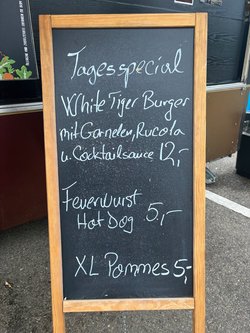 Tagesspecial
White Tiger Burger
mit Garnelen, Rucola
u. Cocktailsauce 12,-
Feuerwurst 
Hot Dog 5,-
XL Pommes 5,-